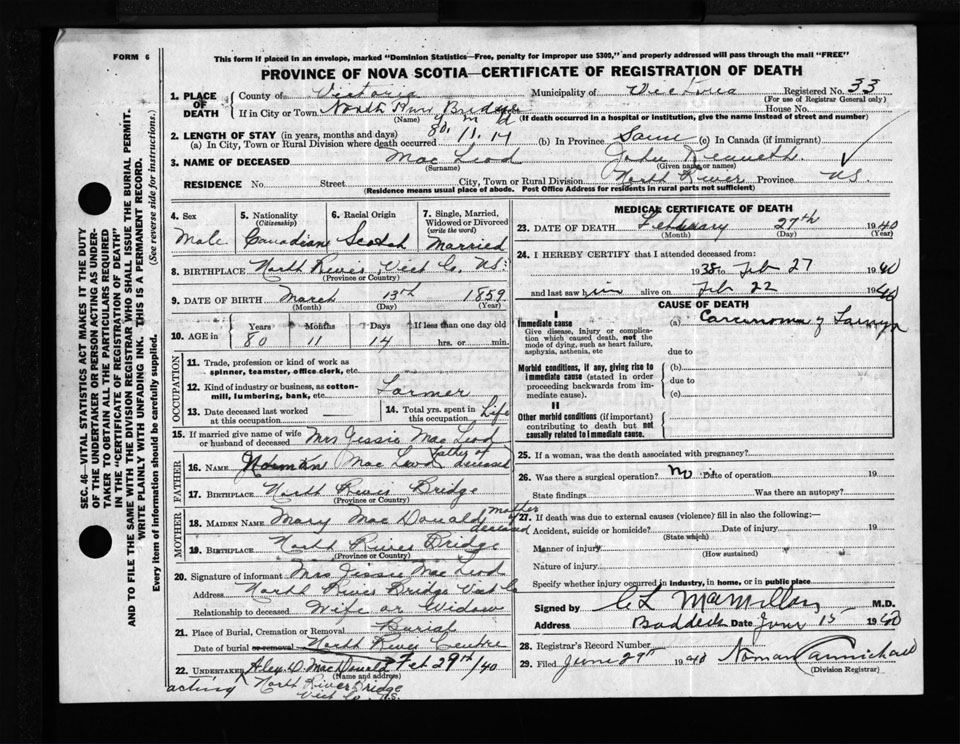 This form if placed in an envelope, marked "Dominion Statistics—Free, penalty for improper use $300," and properly addressed will pass through the mail "FREE"
FORM 6
PROVINCE OF NOVA SCOTIA—CERTIFICATE OF REGISTRATION OF DEATH
1. PLACE OF DEATH County of Victoria Municipality of Victoria Registered No. 33
(For use of Registrar General only)
If in City or Town North River Bridge House No.
(Name) (If death occurred in a hospital or institution, give the name instead of street and number)
2. LENGTH OF STAY (in years, months and days) y m d
(a) In City, Town or Rural Division where death occurred 80. 11. 14 (b) In Province Same (c) In Canada (if immigrant)
3. NAME OF DECEASED Mac Leod John Kenneth
(Surname) (Given name or names)
RESIDENCE No. Street City, Town or Rural Division North River Province N.S.
(Residence means usual place of abode. Post Office Address for residents in rural parts not sufficient)
SEC. 46—VITAL STATISTICS ACT MAKES IT THE DUTY
OF THE UNDERTAKER OR PERSON ACTING AS UNDER-
TAKER TO OBTAIN ALL THE PARTICULARS REQUIRED
IN THE "CERTIFICATE OF REGISTRATION OF DEATH"
AND TO FILE THE SAME WITH THE DIVISION REGISTRAR WHO SHALL ISSUE THE BURIAL PERMIT.
WRITE PLAINLY WITH UNFADING INK. THIS IS A PERMANENT RECORD.
Every item of information should be carefully supplied. (See reverse side for instructions.)
4. Sex Male
5. Nationality (Citizenship) Canadian
6. Racial Origin Scotch
7. Single, Married, Widowed or Divorced (write the word) Married
8. BIRTHPLACE North River, Vict Co, N.S.
(Province or Country)
9. DATE OF BIRTH March 13th 1859
(Month) (Day) (Year)
10. AGE in Years 80 Months 11 Days 14 If less than one day old hrs. or min.
OCCUPATION
11. Trade, profession or kind of work as spinner, teamster, office clerk, etc.
12. Kind of industry or business, as cotton-mill, lumbering, bank, etc. Farmer
13. Date deceased last worked at this occupation —
14. Total yrs. spent in this occupation Life
15. If married give name of wife or husband of deceased Mrs Jessie Mac Leod
FATHER
16. NAME Norman Mac Leod Father of deceased
17. BIRTHPLACE North River Bridge
(Province or Country)
MOTHER
18. MAIDEN NAME Mary Mac Donald mother of deceased
19. BIRTHPLACE North River Bridge
(Province or Country)
20. Signature of informant Mrs Jessie Mac Leod
Address North River Bridge Vict Co
Relationship to deceased Wife or Widow
21. Place of Burial, Cremation or Removal Burial
Date of burial or removal North River Centre
22. UNDERTAKER Alex D. MacDonald Feb 29th/40
(Name and address)
acting North River Bridge
Vict Co. N.S.
MEDICAL CERTIFICATE OF DEATH
23. DATE OF DEATH February 27th 1940
(Month) (Day) (Year)
24. I HEREBY CERTIFY that I attended deceased from:
1938 to Feb 27 1940
and last saw him alive on Feb 22 1940
CAUSE OF DEATH
I
Immediate cause (a) Carcinoma of Larynx
Give disease, injury or complication which caused death, not the mode of dying, such as heart failure, asphyxia, asthenia, etc due to
Morbid conditions, if any, giving rise to immediate cause (stated in order proceeding backwards from immediate cause). (b)
due to
(c)
II
Other morbid conditions (if important) contributing to death but not causally related to immediate cause.
25. If a woman, was the death associated with pregnancy?
26. Was there a surgical operation? No Date of operation 19
State findings Was there an autopsy?
27. If death was due to external causes (violence) fill in also the following:—
Accident, suicide or homicide? Date of injury 19
(State which)
Manner of injury
(How sustained)
Nature of injury
Specify whether injury occurred in industry, in home, or in public place
Signed by C L MacMillan M.D.
Address Baddeck Date June 15 1940
28. Registrar's Record Number
29. Filed June 29th 1940 Norman Carmichael
(Division Registrar)